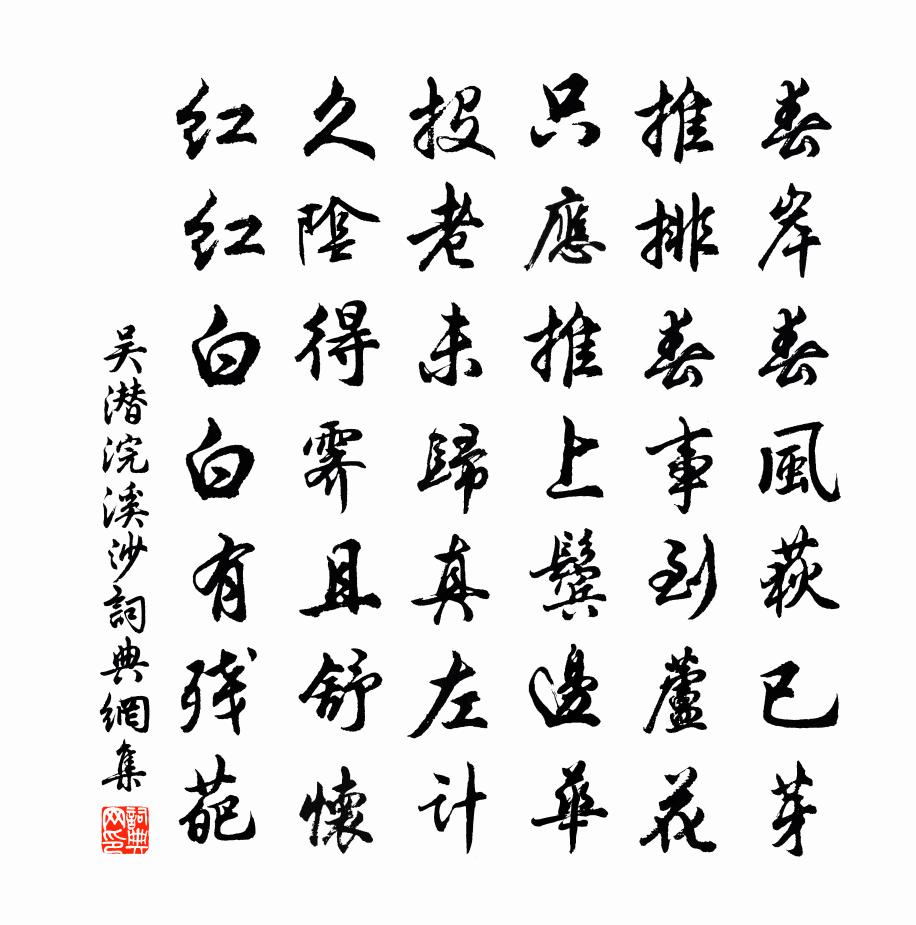 春岸春風荻已芽
推排春事到蘆花
只應推上鬢邊華
投老未歸真左计
久陰得霽且舒懷
红红白白有残葩
吴潜浣溪沙詞典網集
詞典网印